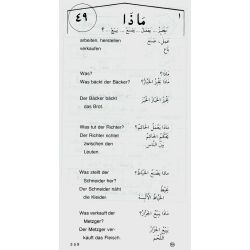 ٤٩
مَاذَا
١
يَخْبِزُ ... يَعْمَلُ ... يَصْنَعُ ... يَبِيعُ ؟
arbeiten, herstellen
عَمِلَ، صَنَعَ
verkaufen
بَاعَ
Was?
مَاذَا؟
Was bäckt der Bäcker?
مَاذَا يَخْبِزُ الْخَبَّازُ؟
Der Bäcker bäckt
das Brot.
يَخْبِزُ الْخَبَّازُ الْخُبْزَ
Was tut der Richter?
مَاذَا يَعْمَلُ الْحَاكِمُ؟
Der Richter richtet
zwischen den
Leuten.
يَحْكُمُ الْحَاكِمُ
بَيْنَ النَّاسِ
Was stellt der
Schneider her?
مَاذَا يَصْنَعُ الْخَيَّاطُ؟
Der Schneider näht
die Kleider.
يَخِيطُ
الْخَيَّاطُ الْأَلْبِسَةَ
Was verkauft der
Metzger?
مَاذَا يَبِيعُ الْجَزَّارُ؟
Der Metzger ver-
kauft das Fleisch.
يَبِيعُ الْجَزَّارُ
اللَّحْمَ